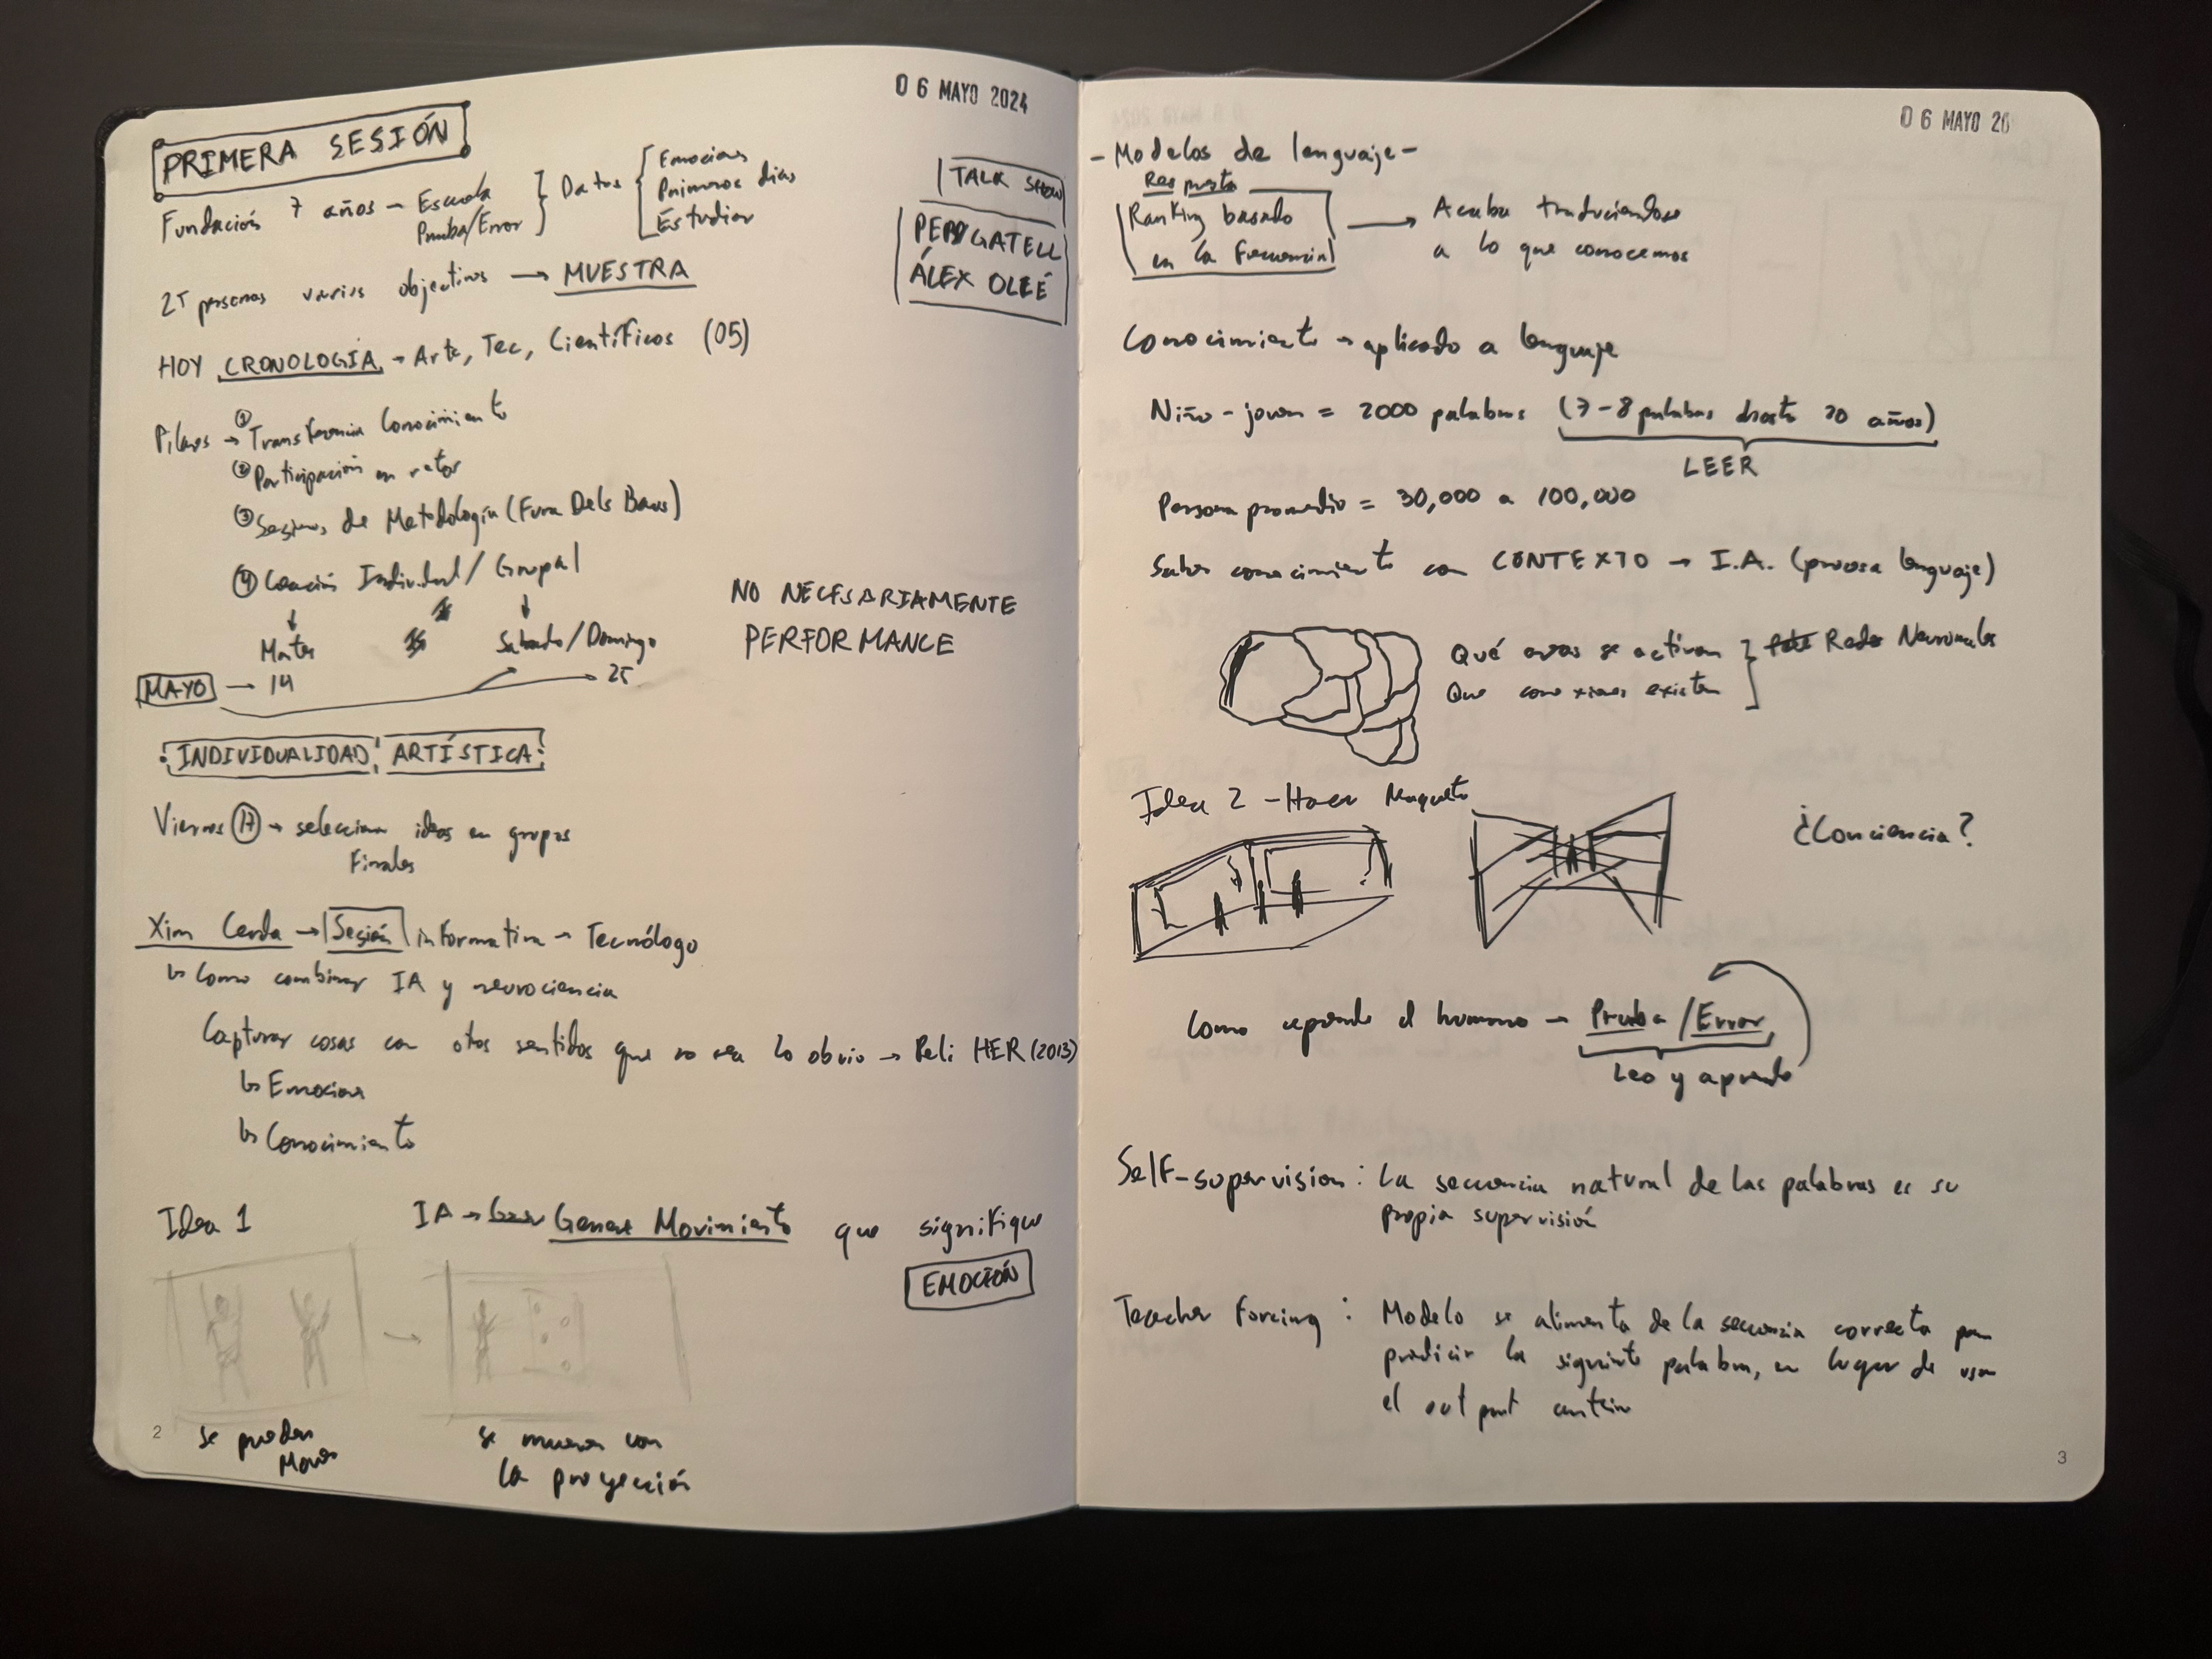 0 6 MAYO 2024
PRIMERA SESIÓN
Fundación 7 años - Escuela
Prueba/Error
Datos
Emociones
Primeros dias
Estudiar
TALK SHOW
PEP GATELL
ÁLEX OLLÉ
25 personas varios objectivos → MUESTRA
HOY CRONOLOGÍA → Arte, Tec, Científicos (05)
Pilares → ① Transferencia Conocimiento
② Participación en retos
③ Sesiones de Metodología (Fura Dels Baus)
④ Creación Individual / Grupal
Martes
Sabado/Domingo
MAYO → 14
25
NO NECESARIAMENTE
PERFORMANCE
INDIVIDUALIDAD ARTÍSTICA
Viernes 17 → seleccionar ideas en grupos
Finales
Xim Cerda → Sesión informativa → Tecnólogo
↳ Como combinar IA y neurociencia
Capturar cosas con otros sentidos que no sea lo obvio → Peli HER (2013)
↳ Emociones
↳ Conocimiento
Idea 1
IA → Genere Movimiento que signifique
EMOCIÓN
se pueden
Mover
se mueven con
la proyección
2
0 6 MAYO 20
- Modelos de lenguaje -
Respuesta
Ranking basado
en la frecuencia
→ Acaba traduciendose
a lo que conocemos
Conocimiento → aplicado a lenguaje
Niño - joven = 2000 palabras (7-8 palabras hasta 20 años)
LEER
Persona promedio = 30,000 a 100,000
Saber conocimiento con CONTEXTO → I.A. (procesa lenguaje)
Qué areas se activan
Que conexiones existen
Redes Neuronales
Idea 2 - Hacer Maqueta
¿Conciencia?
Como aprende el humano → Prueba /Error
Leo y aprendo
Self-supervision: La secuencia natural de las palabras es su
propia supervisión
Teacher Forcing: Modelo se alimenta de la secuencia correcta para
predicir la siguiente palabra, en lugar de usar
el output anterior
3